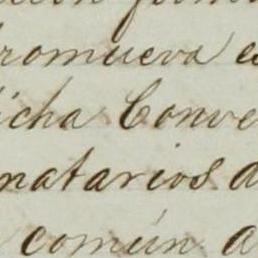 romueva e
icha Conve
natarios d
comúm a